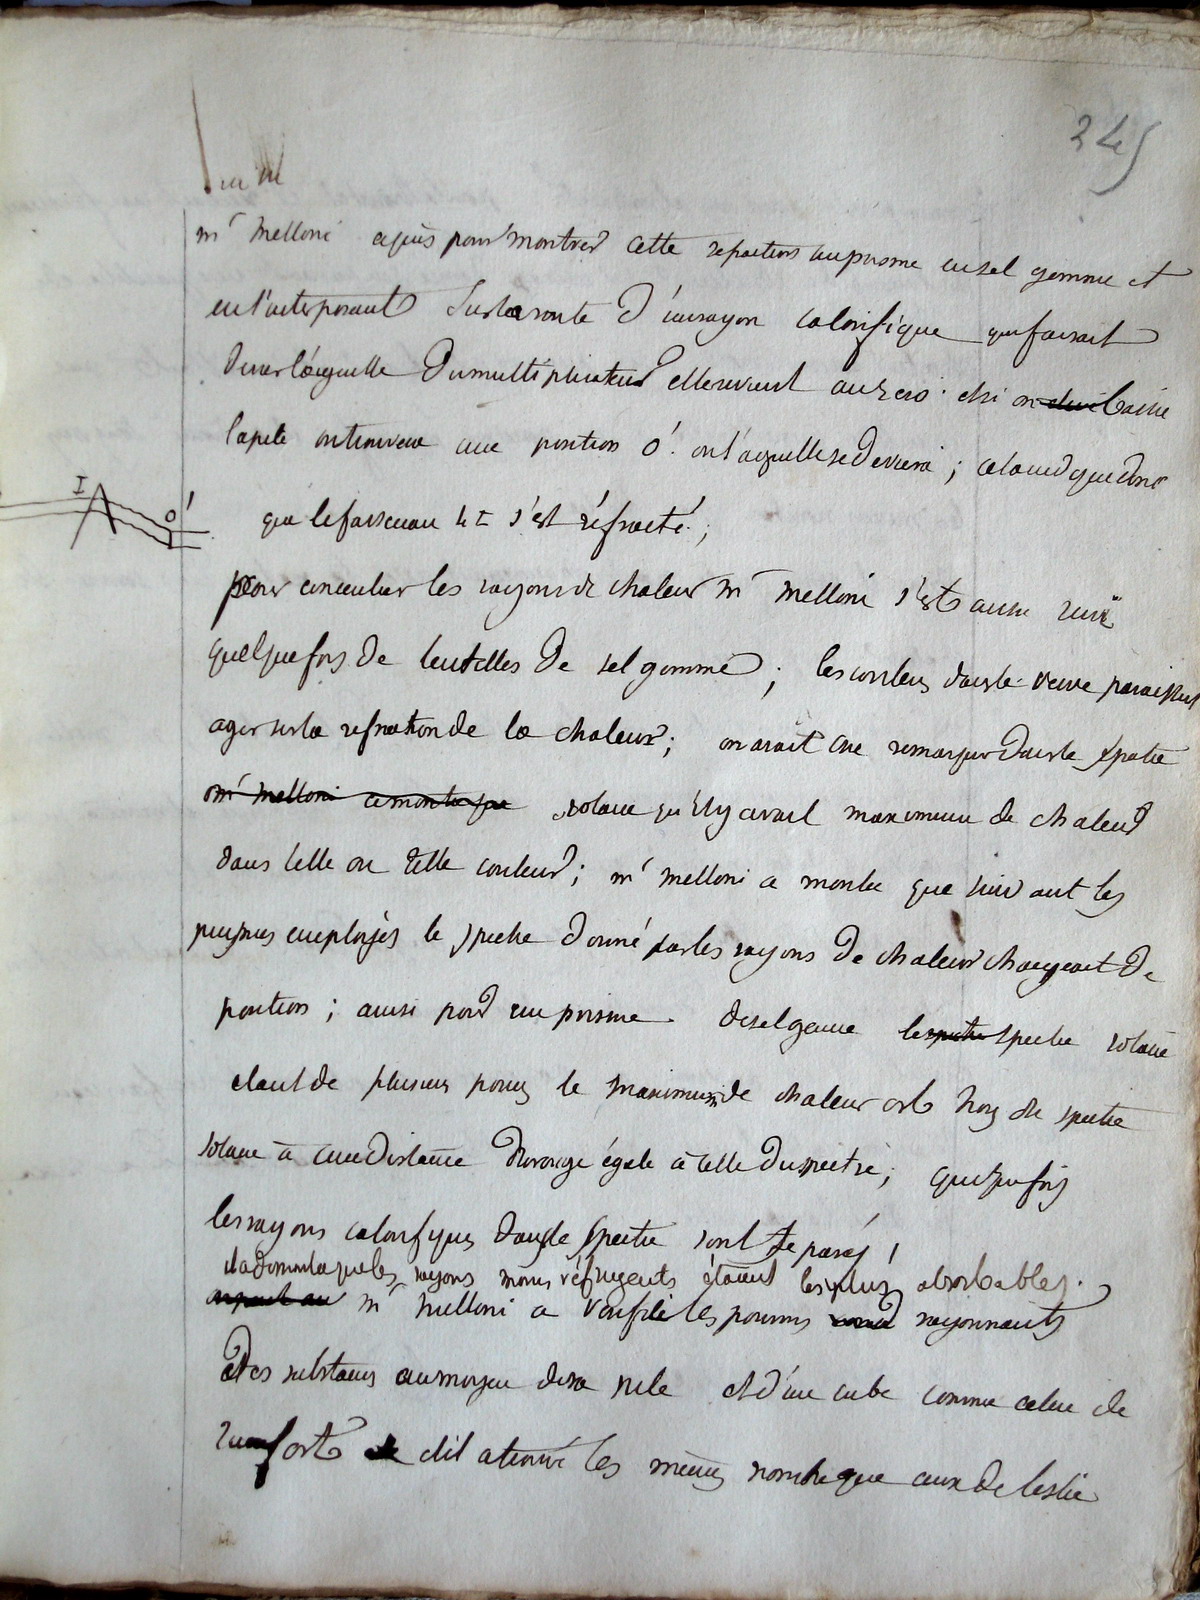 245
mr Melloni a pris pour montrer cette refraction un prisme en sel gemme et
en l'interposant sur la route d'un rayon calorifique qui faisait
devier l'aiguille du multiplicateur elle revient au zero. et si on baisse
la pile on trouvera une position O'. ou l'aiguille se deviera; cela veut dire
I
O'
que le faisceau s'est réfracté;
pour concentrer les rayons de chaleur mr Melloni s'est aussi servi
quelquefois de lentilles de sel gemme; les couleurs dans le verre paraissent
agir sur la refraction de la chaleur; on avait cru remarquer dans le spectre
mr Melloni a montré que solaire qu'il y avait maximum de chaleur
dans telle ou telle couleur; mr melloni a montré que suivant les
prismes employés le spectre donné par les rayons de chaleur changeait de
position; ainsi pour un prisme de sel gemme le spectre solaire
etant de plusieurs pouces le maximum de chaleur est hors du spectre
solaire à une distance du rouge égale à celle du spectre; quelquefois
les rayons calorifiques dans le spectre sont separés;
il a demontré que les rayons moins réfrigents étaient les plus absorbables.
mr Melloni a verifié les pouvoirs rayonnants
des substances au moyen de sa pile et d'un cube comme celui de
rumfort et il a trouvé les mêmes nombre que ceux de leslie